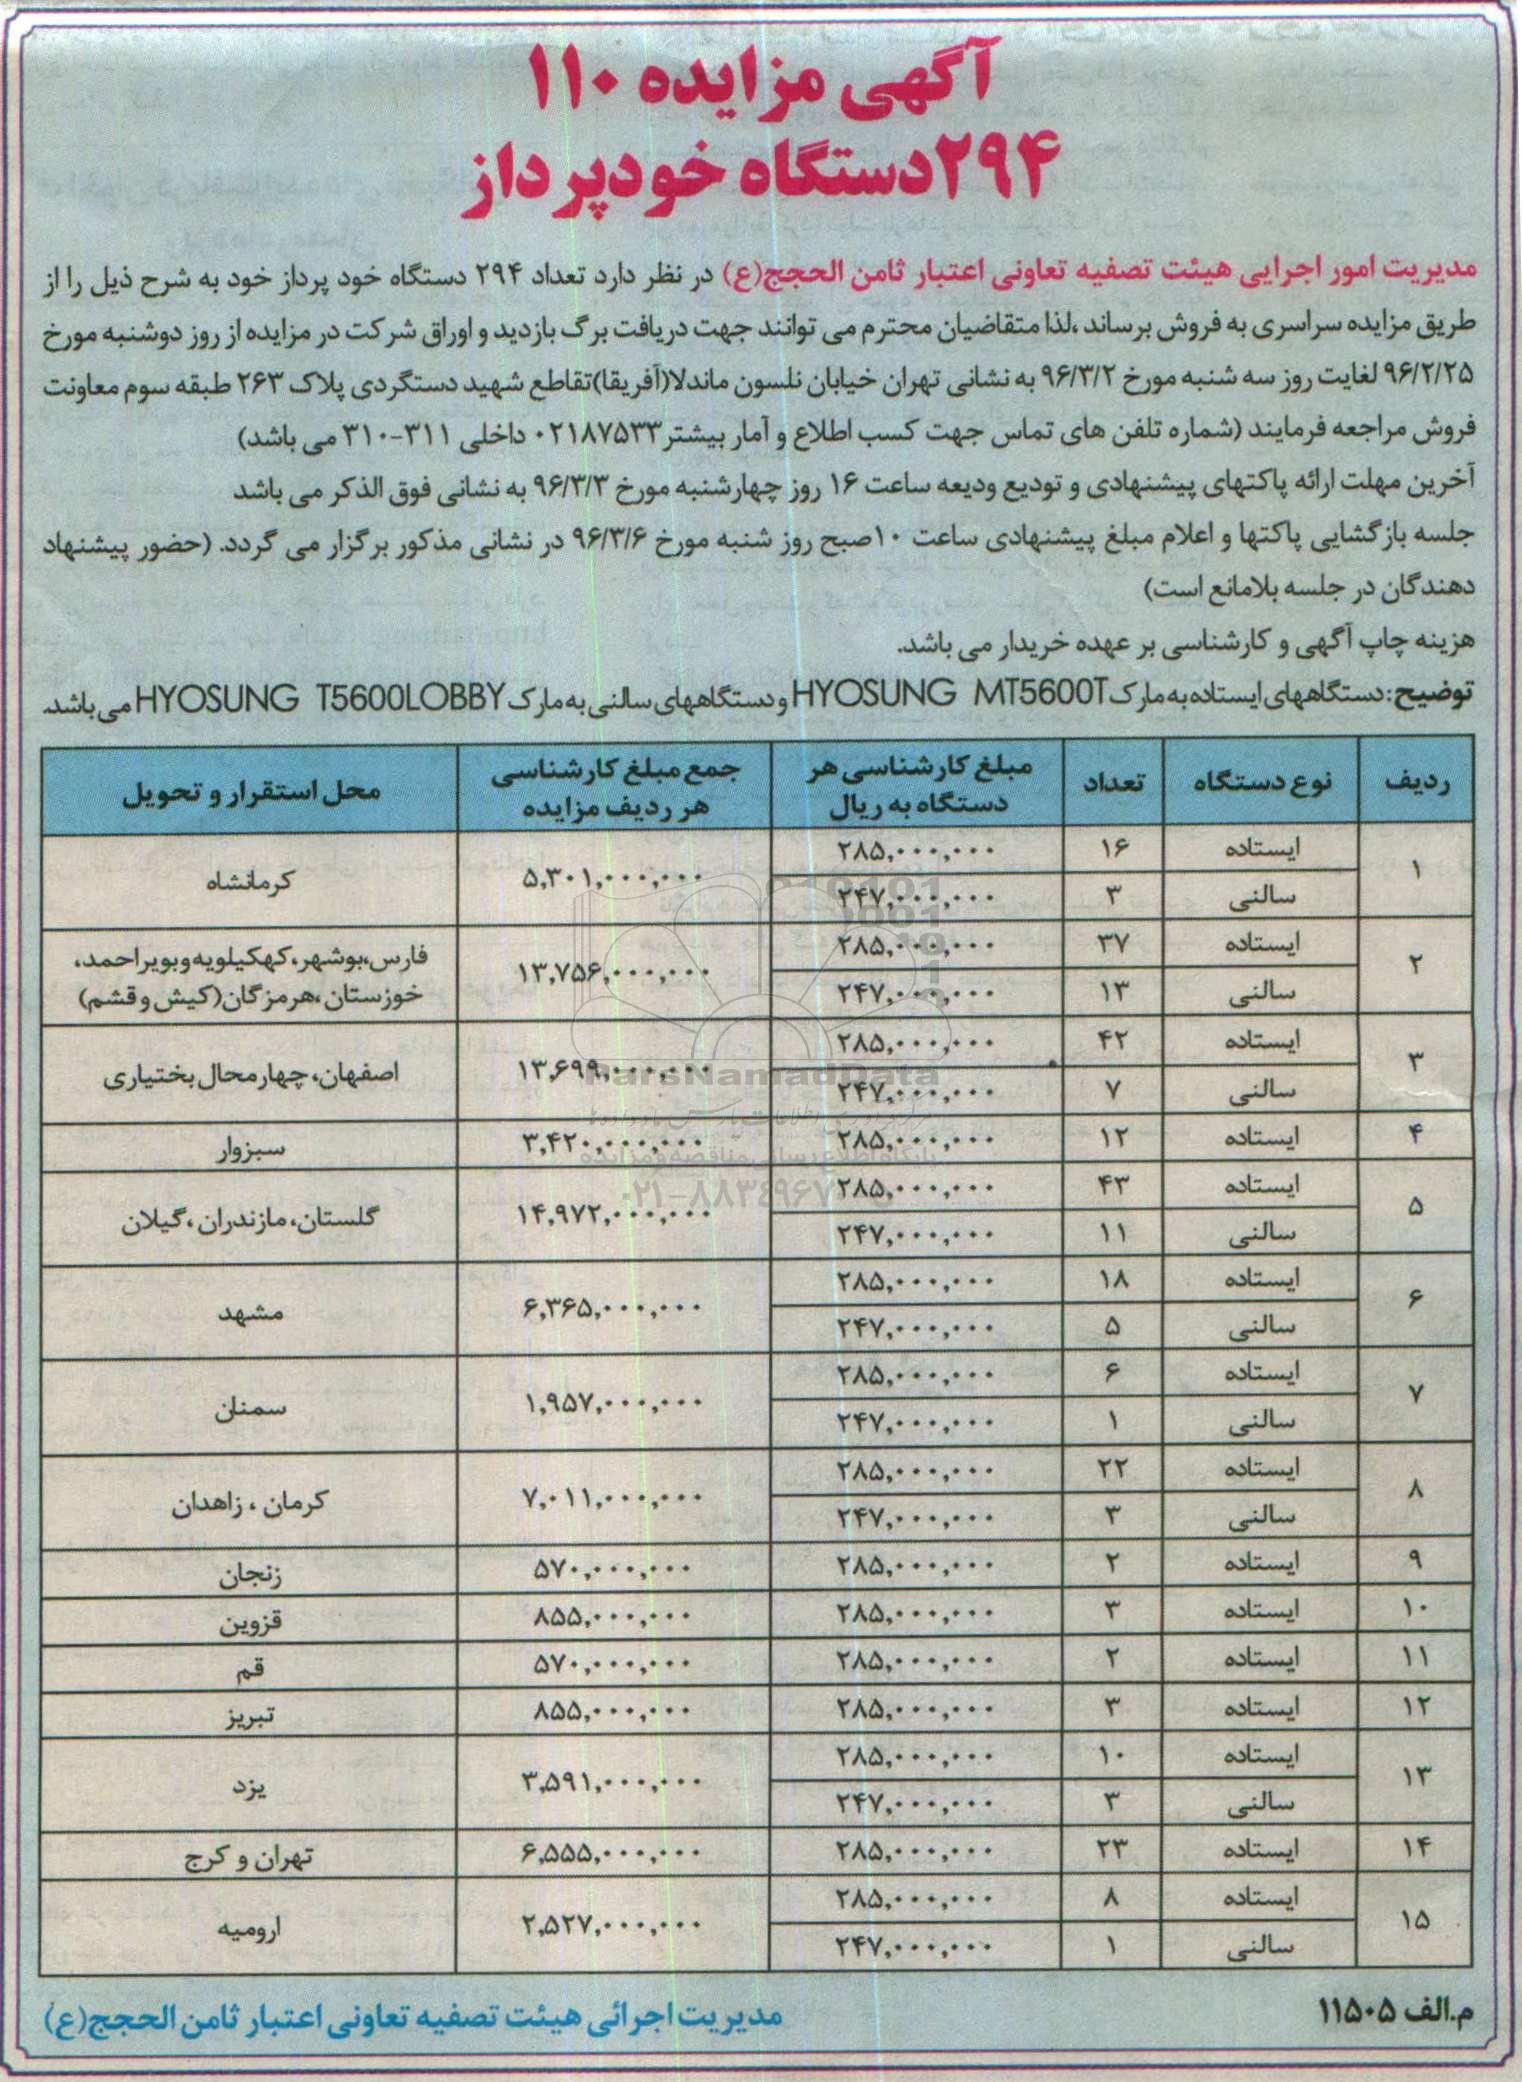 آگهی مزایده ۱۱۰
۲۹۴دستگاه خودپرداز
مدیریت امور اجرایی هیئت تصفیه تعاونی اعتبار ثامن الحجج(ع) در نظر دارد تعداد ۲۹۴ دستگاه خود پرداز خود به شرح ذیل را از
طریق مزایده سراسری به فروش برساند ،لذا متقاضیان محترم می توانند جهت دریافت برگ بازدید و اوراق شرکت در مزایده از روز دوشنبه مورخ
۹۶/۲/۲۵ لغایت روز سه شنبه مورخ ۹۶/۳/۲ به نشانی تهران خیابان نلسون ماندلا(آفریقا)تقاطع شهید دستگردی پلاک ۲۶۳ طبقه سوم معاونت
فروش مراجعه فرمایند (شماره تلفن های تماس جهت کسب اطلاع و آمار بیشتر۰۲۱۸۷۵۳۳ داخلی ۳۱۱-۳۱۰ می باشد)
آخرین مهلت ارائه پاکتهای پیشنهادی و تودیع ودیعه ساعت ۱۶ روز چهارشنبه مورخ ۹۶/۳/۳ به نشانی فوق الذکر می باشد
جلسه بازگشایی پاکتها و اعلام مبلغ پیشنهادی ساعت ۱۰صبح روز شنبه مورخ ۹۶/۳/۶ در نشانی مذکور برگزار می گردد. (حضور پیشنهاد
دهندگان در جلسه بلامانع است)
هزینه چاپ آگهی و کارشناسی بر عهده خریدار می باشد.
توضیح: دستگاههای ایستاده به مارک HYOSUNG MT5600T و دستگاههای سالنی به مارک HYOSUNG T5600LOBBY می باشد.
ردیف نوع دستگاه تعداد مبلغ کارشناسی هر دستگاه به ریال جمع مبلغ کارشناسی هر ردیف مزایده محل استقرار و تحویل
۱ ایستاده ۱۶ ۲۸۵,۰۰۰,۰۰۰ ۵,۳۰۱,۰۰۰,۰۰۰ کرمانشاه
سالنی ۳ ۲۴۷,۰۰۰,۰۰۰
۲ ایستاده ۳۷ ۲۸۵,۰۰۰,۰۰۰ ۱۳,۷۵۶,۰۰۰,۰۰۰ فارس،بوشهر،کهکیلویه وبویراحمد، خوزستان ،هرمزگان(کیش و قشم)
سالنی ۱۳ ۲۴۷,۰۰۰,۰۰۰
۳ ایستاده ۴۲ ۲۸۵,۰۰۰,۰۰۰ ۱۳,۶۹۹,۰۰۰,۰۰۰ اصفهان، چهارمحال بختیاری
سالنی ۷ ۲۴۷,۰۰۰,۰۰۰
۴ ایستاده ۱۲ ۲۸۵,۰۰۰,۰۰۰ ۳,۴۲۰,۰۰۰,۰۰۰ سبزوار
۵ ایستاده ۴۳ ۲۸۵,۰۰۰,۰۰۰ ۱۴,۹۷۲,۰۰۰,۰۰۰ گلستان، مازندران ،گیلان
سالنی ۱۱ ۲۴۷,۰۰۰,۰۰۰
۶ ایستاده ۱۸ ۲۸۵,۰۰۰,۰۰۰ ۶,۳۶۵,۰۰۰,۰۰۰ مشهد
سالنی ۵ ۲۴۷,۰۰۰,۰۰۰
۷ ایستاده ۶ ۲۸۵,۰۰۰,۰۰۰ ۱,۹۵۷,۰۰۰,۰۰۰ سمنان
سالنی ۱ ۲۴۷,۰۰۰,۰۰۰
۸ ایستاده ۲۲ ۲۸۵,۰۰۰,۰۰۰ ۷,۰۱۱,۰۰۰,۰۰۰ کرمان ، زاهدان
سالنی ۳ ۲۴۷,۰۰۰,۰۰۰
۹ ایستاده ۲ ۲۸۵,۰۰۰,۰۰۰ ۵۷۰,۰۰۰,۰۰۰ زنجان
۱۰ ایستاده ۳ ۲۸۵,۰۰۰,۰۰۰ ۸۵۵,۰۰۰,۰۰۰ قزوین
۱۱ ایستاده ۲ ۲۸۵,۰۰۰,۰۰۰ ۵۷۰,۰۰۰,۰۰۰ قم
۱۲ ایستاده ۳ ۲۸۵,۰۰۰,۰۰۰ ۸۵۵,۰۰۰,۰۰۰ تبریز
۱۳ ایستاده ۱۰ ۲۸۵,۰۰۰,۰۰۰ ۳,۵۹۱,۰۰۰,۰۰۰ یزد
سالنی ۳ ۲۴۷,۰۰۰,۰۰۰
۱۴ ایستاده ۲۳ ۲۸۵,۰۰۰,۰۰۰ ۶,۵۵۵,۰۰۰,۰۰۰ تهران و کرج
۱۵ ایستاده ۸ ۲۸۵,۰۰۰,۰۰۰ ۲,۵۲۷,۰۰۰,۰۰۰ ارومیه
سالنی ۱ ۲۴۷,۰۰۰,۰۰۰
ParsNamadData
پایگاه اطلاع رسانی مناقصه و مزایده
م.الف ۱۱۵۰۵
مدیریت اجرائی هیئت تصفیه تعاونی اعتبار ثامن الحجج(ع)